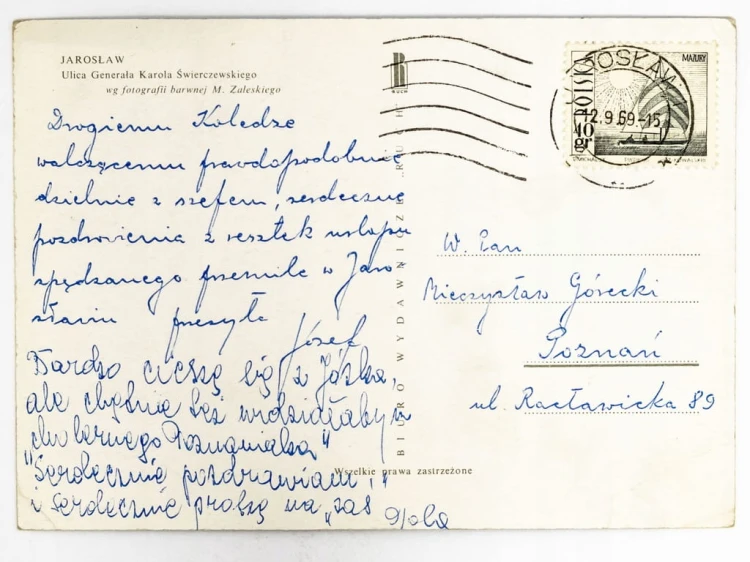 JAROSŁAW
Ulica Generała Karola Świerczewskiego
wg fotografii barwnej M. Zaleskiego
RUCH
Drogiemu Koledze
walczącemu prawdopodobnie
dzielnie z szefem, serdeczne
pozdrowienia z resztek urlopu
spędzanego przemile w Jaro-
sławiu przesyła
Józef
Bardzo cieszę się z Józka,
ale chętnie też widziałabym
"Serdecznie pozdrawiam,"
i serdecznie proszę na
BIURO WYDAWNICZE RUCH
Wszelkie prawa zastrzeżone
JAROSŁAW 1
12.9.69-15
POLSKA
MAZURY
40 gr
W. Pan
Mieczysław Górecki
Poznań
ul. Racławicka 89